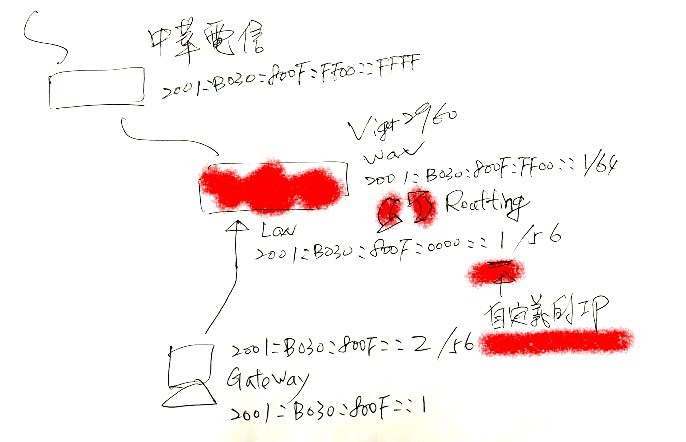 中華電信
2001:B030:800F:FF00::FFFF
Vigor2960
Wan
2001:B030:800F:FF00::1/64
Routting
Lan
2001:B030:800F:0000::1/56
自定義的IP
2001:B030:800F::2/56
Gateway
2001:B030:800F::1